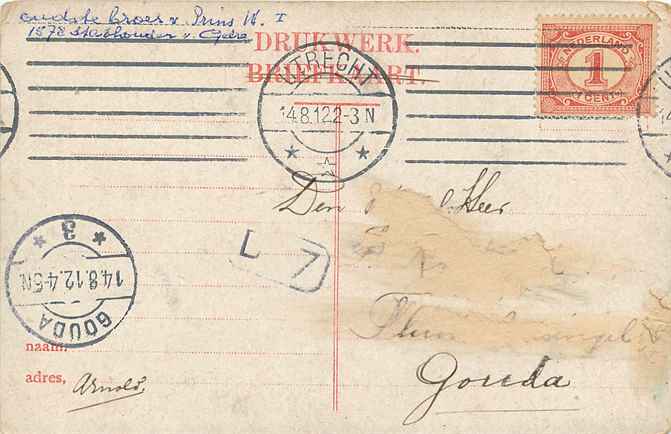 oudste broer v. Prins W. I
1578 stadhouder v. Gelre
DRUKWERK.
BRIEFKAART.
NEDERLAND
1
CENT
UTRECHT
14.8.12.2-3 N
Den Heer
L 7
3
14.8.12.4-5N
GOUDA
singel
Gouda
naam:
adres, Arnold.